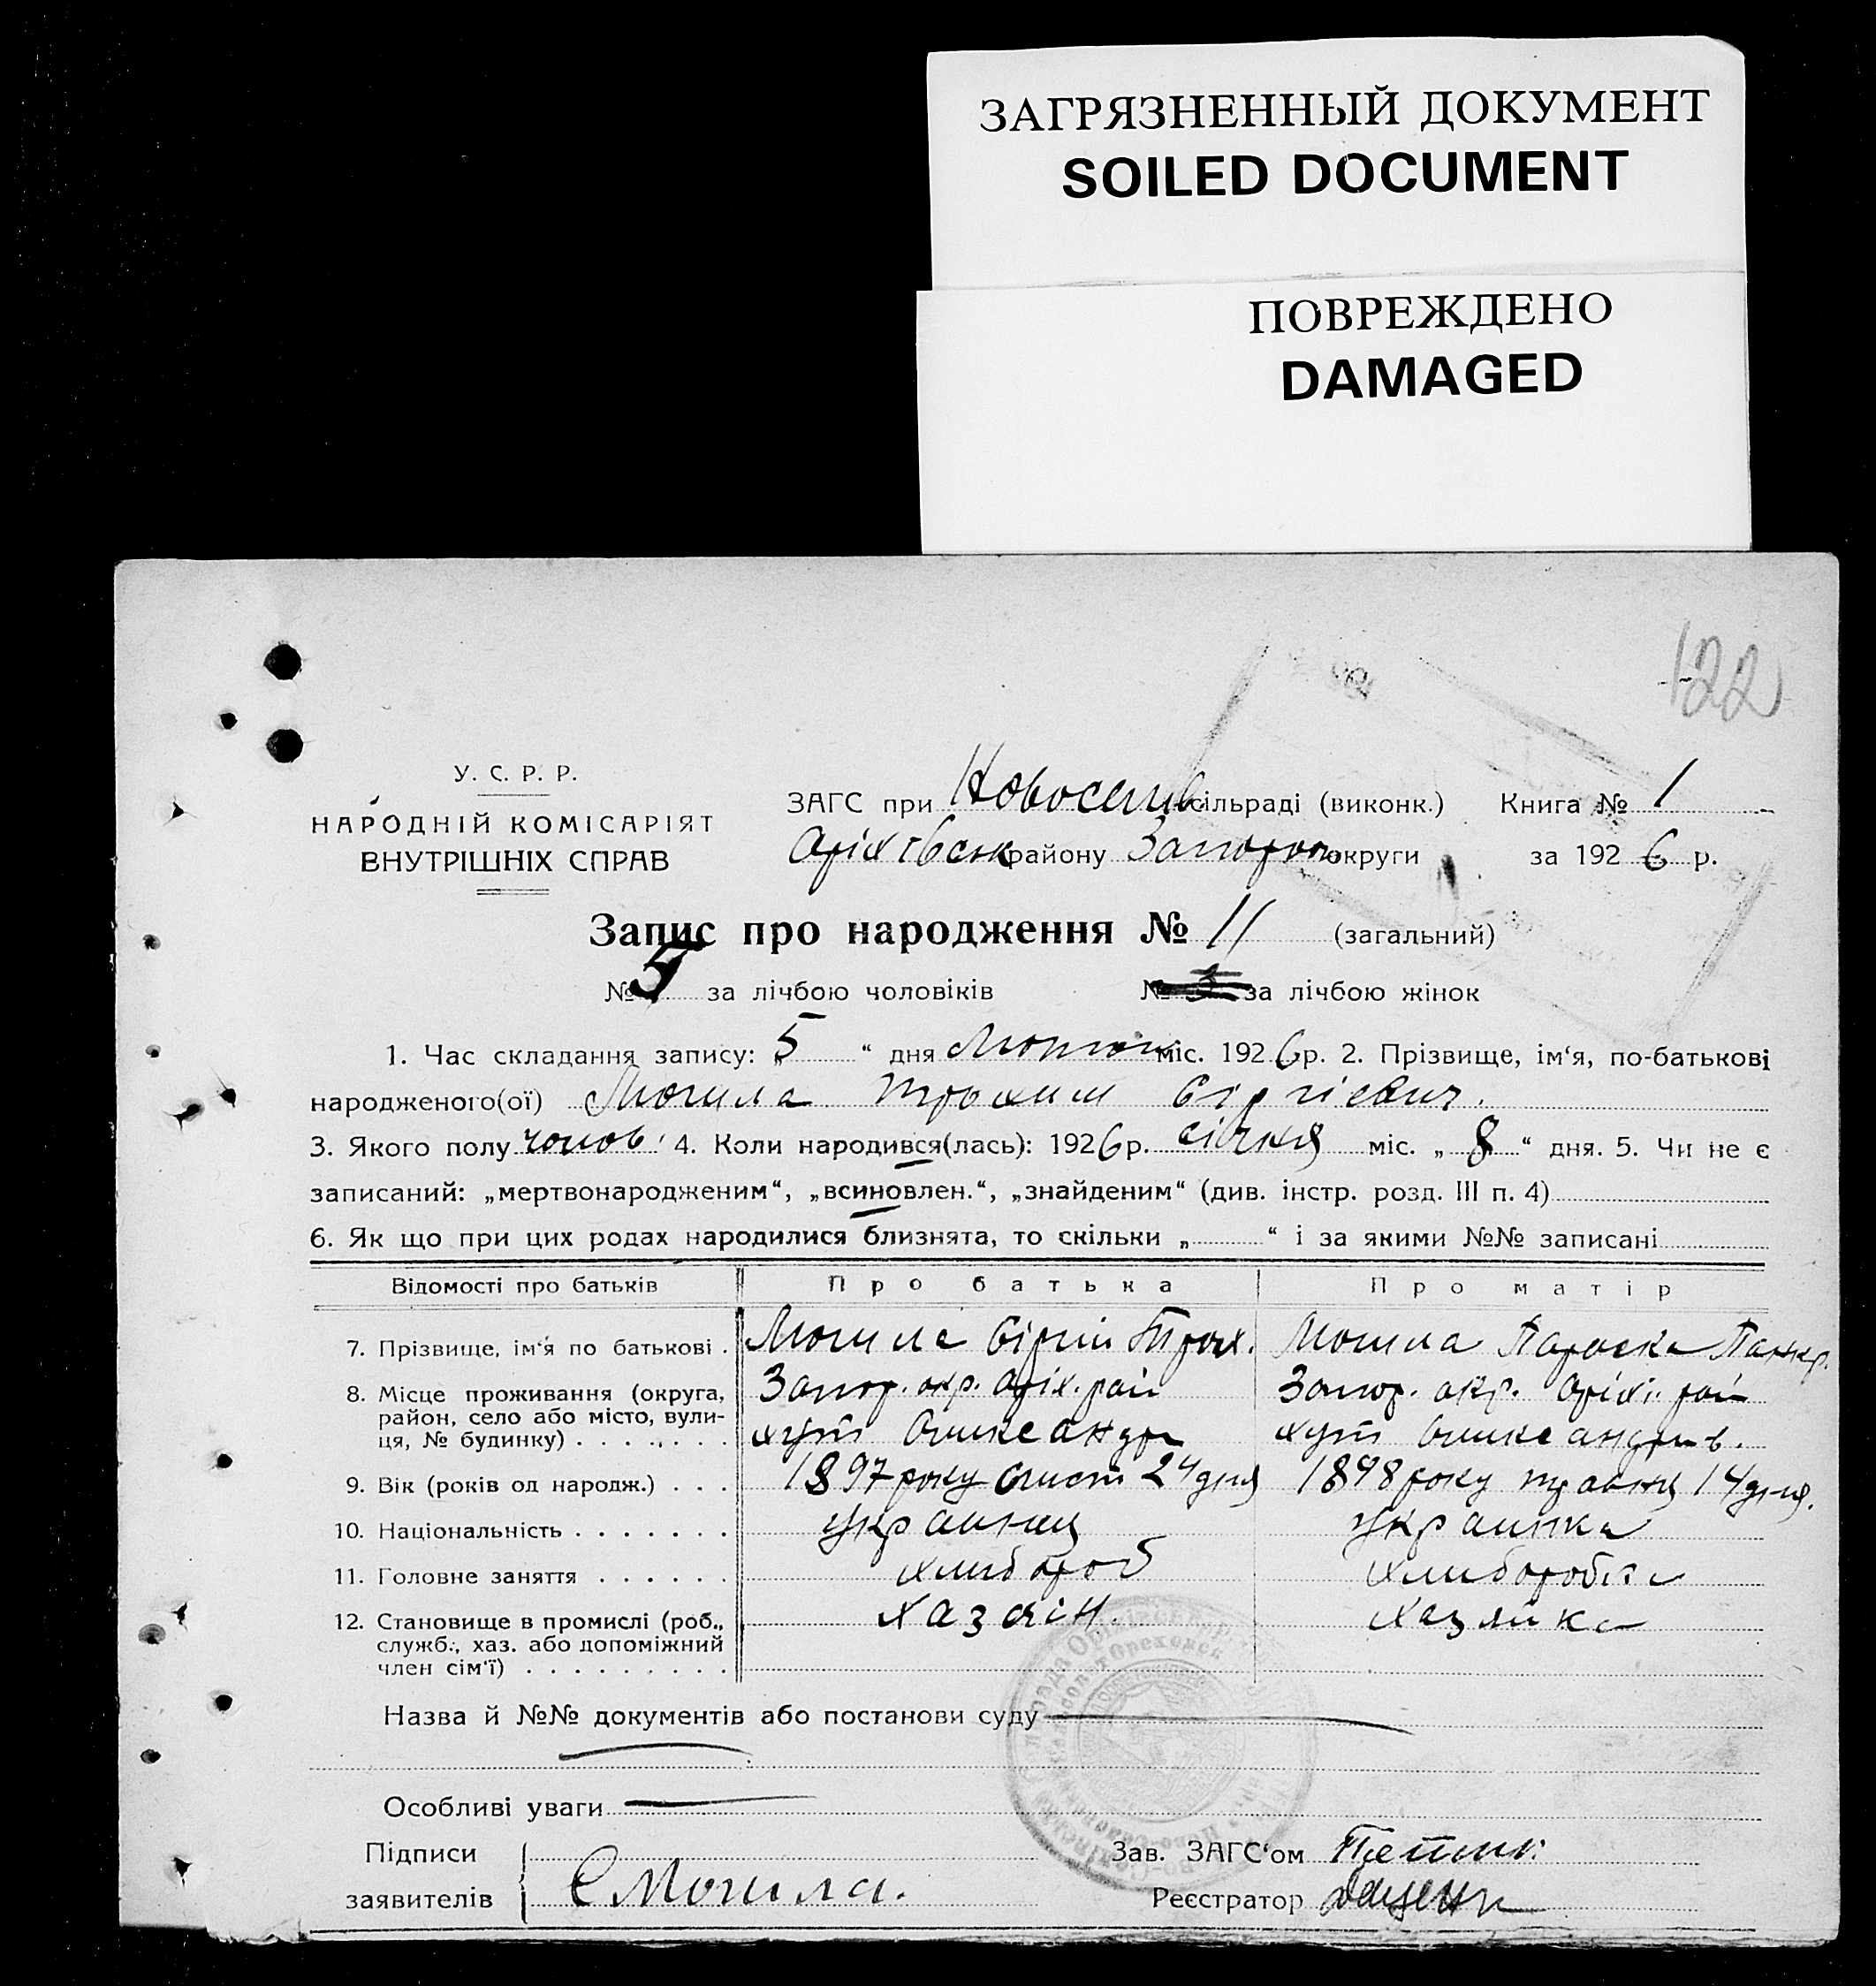 ЗАГРЯЗНЕННЫЙ ДОКУМЕНТ
SOILED DOCUMENT
ПОВРЕЖДЕНО
DAMAGED
122
У. С. Р. Р.
НАРОДНІЙ КОМІСАРІЯТ
ВНУТРІШНІХ СПРАВ
ЗАГС при Новоселив сільраді (виконк.) Книга № 1
Оріхівськ району Запороз. округи за 1926 р.
Запис про народження № 11 (загальний)
№ 5 за лічбою чоловіків № 3 за лічбою жінок
1. Час складання запису: „5“ дня Лютого міс. 1926 р. 2. Прізвище, ім‘я, по-батькові
народженого(ої) Могила Трохим Сергієвич.
3. Якого полу чолов. 4. Коли народився(лась): 1926 р. січня міс. „8“ дня. 5. Чи не є
записаний: „мертвонародженим“, „всиновлен.“, „знайденим“ (див. інстр. розд. III п. 4)
6. Як що при цих родах народилися близнята, то скільки „ “ і за якими №№ записані
Відомості про батьків Про батька Про матір
7. Прізвище, ім‘я по батькові . Могила Сіргій Трох. Могила Параска Панкр.
8. Місце проживання (округа, Запор. окр. Оріх. рай Запор. окр. Оріх. рай
район, село або місто, вули-
ця, № будинку) . . . . . . . хут Олександр хут Олександрив.
9. Вік (років од народж.) . . . 1897 року 24 дня 1898 року травня 14 дня.
10. Національність . . . . . . . Украинец Украинка
11. Головне заняття . . . . . . хлибороб хлиборобка
12. Становище в промислі (роб., Хазяін. Хазяйка
служб., хаз. або допоміжний
член сім‘ї) . . . . . . . . .
Назва й №№ документів або постанови суду
Особливі уваги
Підписи Зав. ЗАГС‘ом
заявителів С Могила. Реєстратор